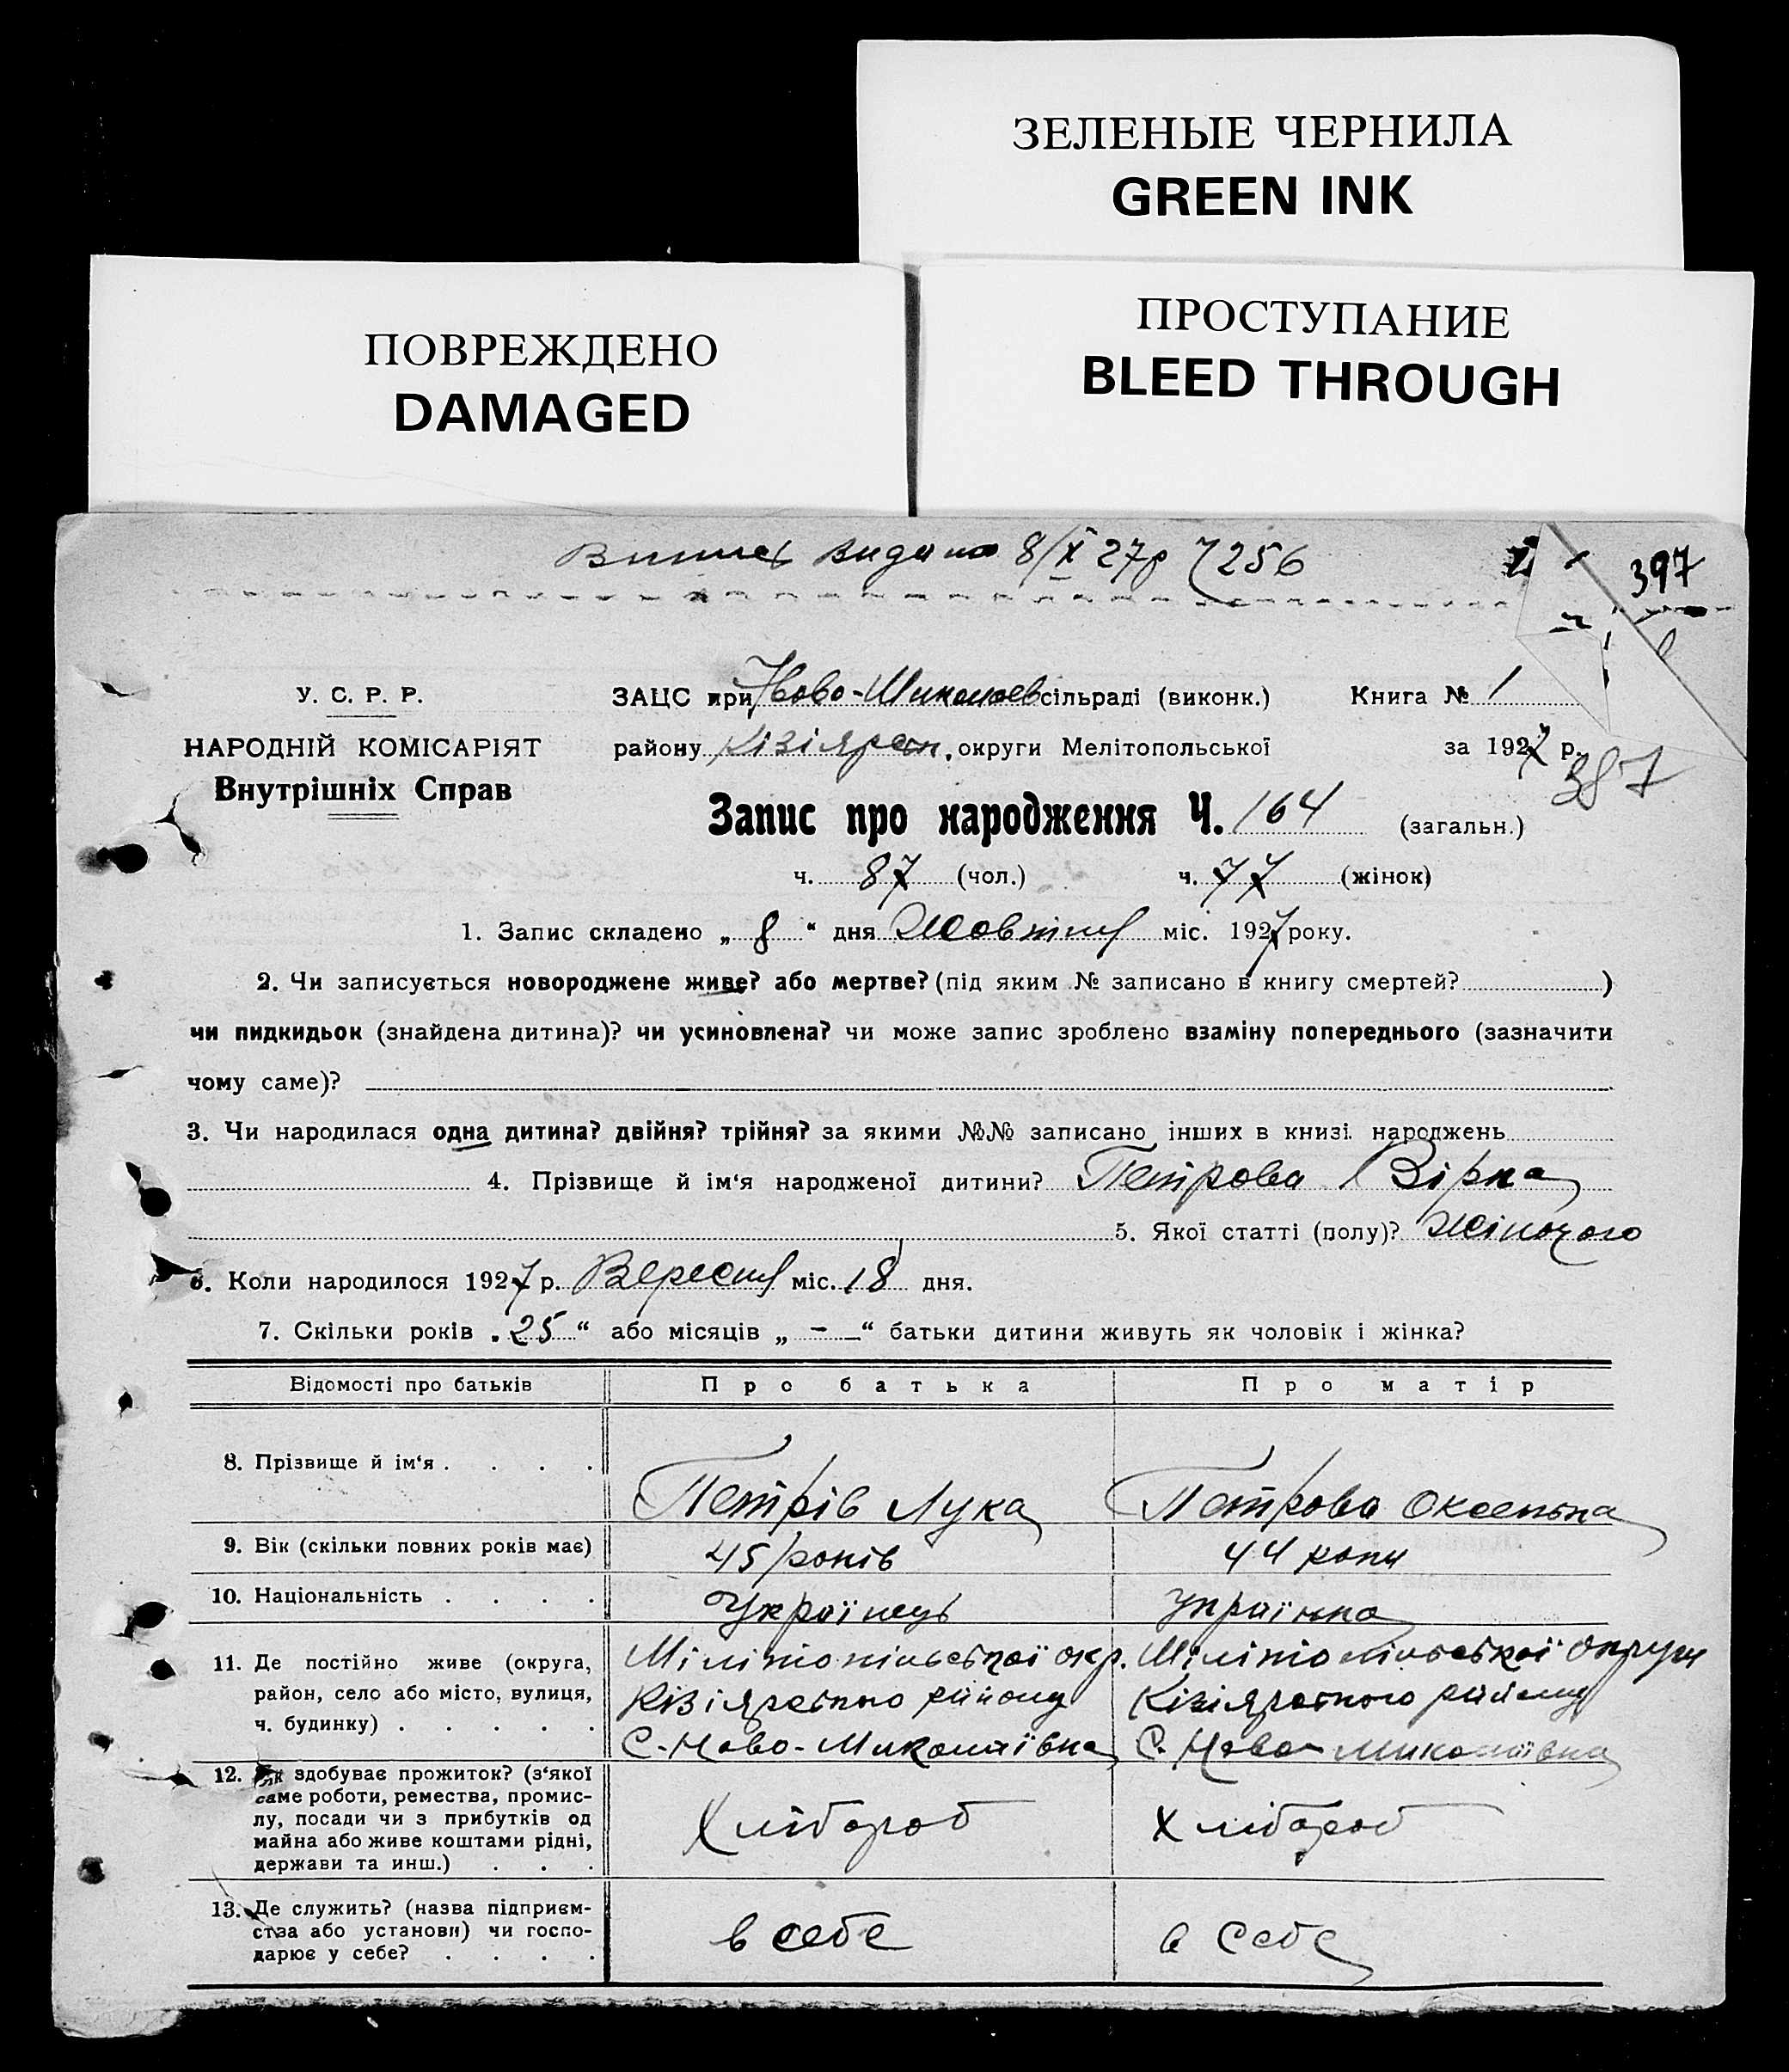 ЗЕЛЕНЫЕ ЧЕРНИЛА
GREEN INK
ПОВРЕЖДЕНО
DAMAGED
ПРОСТУПАНИЕ
BLEED THROUGH
Випись видана 8/X 27р 7256
397
У. С. Р. Р.
НАРОДНІЙ КОМІСАРІЯТ
Внутрішніх Справ
ЗАЦС при Ново-Миколаев сільраді (виконк.) Книга № 1
району Кізіярськ. округи Мелітопольської за 1927 р.
387
Запис про народження Ч. 164 (загальн.)
ч. 87 (чол.) ч. 77 (жінок)
1. Запис складено „ 8 “ дня Жовтня міс. 1927 року.
2. Чи записується новороджене живе? або мертве? (під яким № записано в книгу смертей? )
чи пидкидьок (знайдена дитина)? чи усиновлена? чи може запис зроблено взаміну попереднього (зазначити
чому саме)?
3. Чи народилася одна дитина? двійня? трійня? за якими №№ записано інших в книзі народжень
4. Прізвище й ім‘я народженої дитини? Петрова Вірка
5. Якої статті (полу)? Жіночого
6. Коли народилося 1927 р. Вересня міс. 18 дня.
7. Скільки років „ 25 “ або місяців „ - “ батьки дитини живуть як чоловік і жінка?
Відомості про батьків Про батька Про матір
8. Прізвище й ім‘я . . . . Петрів Лука Петрова Оксенька
9. Вік (скільки повних років має) 45 років 44 роки
10. Національність . . . . Українець Українка
11. Де постійно живе (округа,
район, село або місто, вулиця,
ч. будинку) . . . . .
Мілітопільської окр.
Кізіярського району
С-Ново-Миколаївка
Мілітопільської округи
Кізіярського району
С. Ново-Миколаївка
12. Як здобуває прожиток? (з‘якої
саме роботи, ремества, промис-
лу, посади чи з прибутків од
майна або живе коштами рідні,
держави та инш.) . . .
Хлібороб Хлібороб
13. Де служить? (назва підприєм-
ства або установи) чи госпо-
дарює у себе? . . . .
в себе в себе